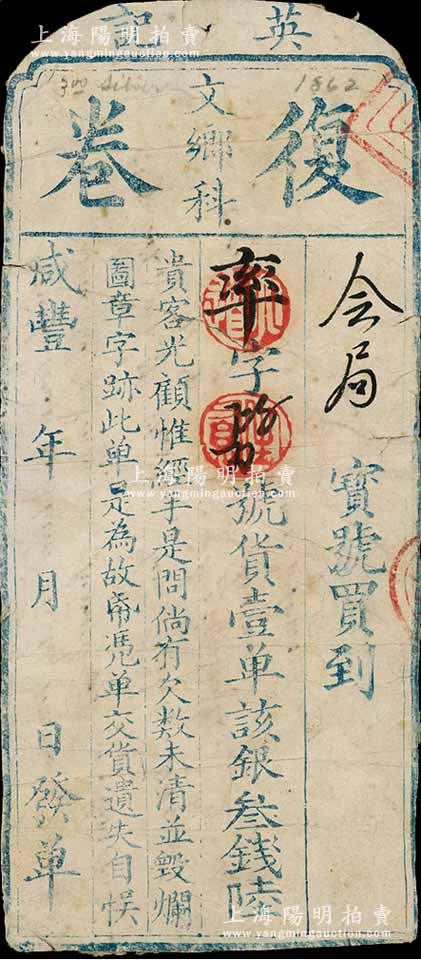 英記
復卷
文鄉科
会局
寳號買到
率字 號貨壹单該銀叁錢陸
貴客光顧惟經手是問倘有欠数未清並毀爛
圖章字跡此单是為故帋憑单交貨遺失自悮
咸豐 年 月 日發单
300 Silver
1862
上海陽明拍賣
www.yangmingauction.com
上海陽明拍賣
www.yangmingauction.com
上海陽明拍賣
www.yangmingauction.com